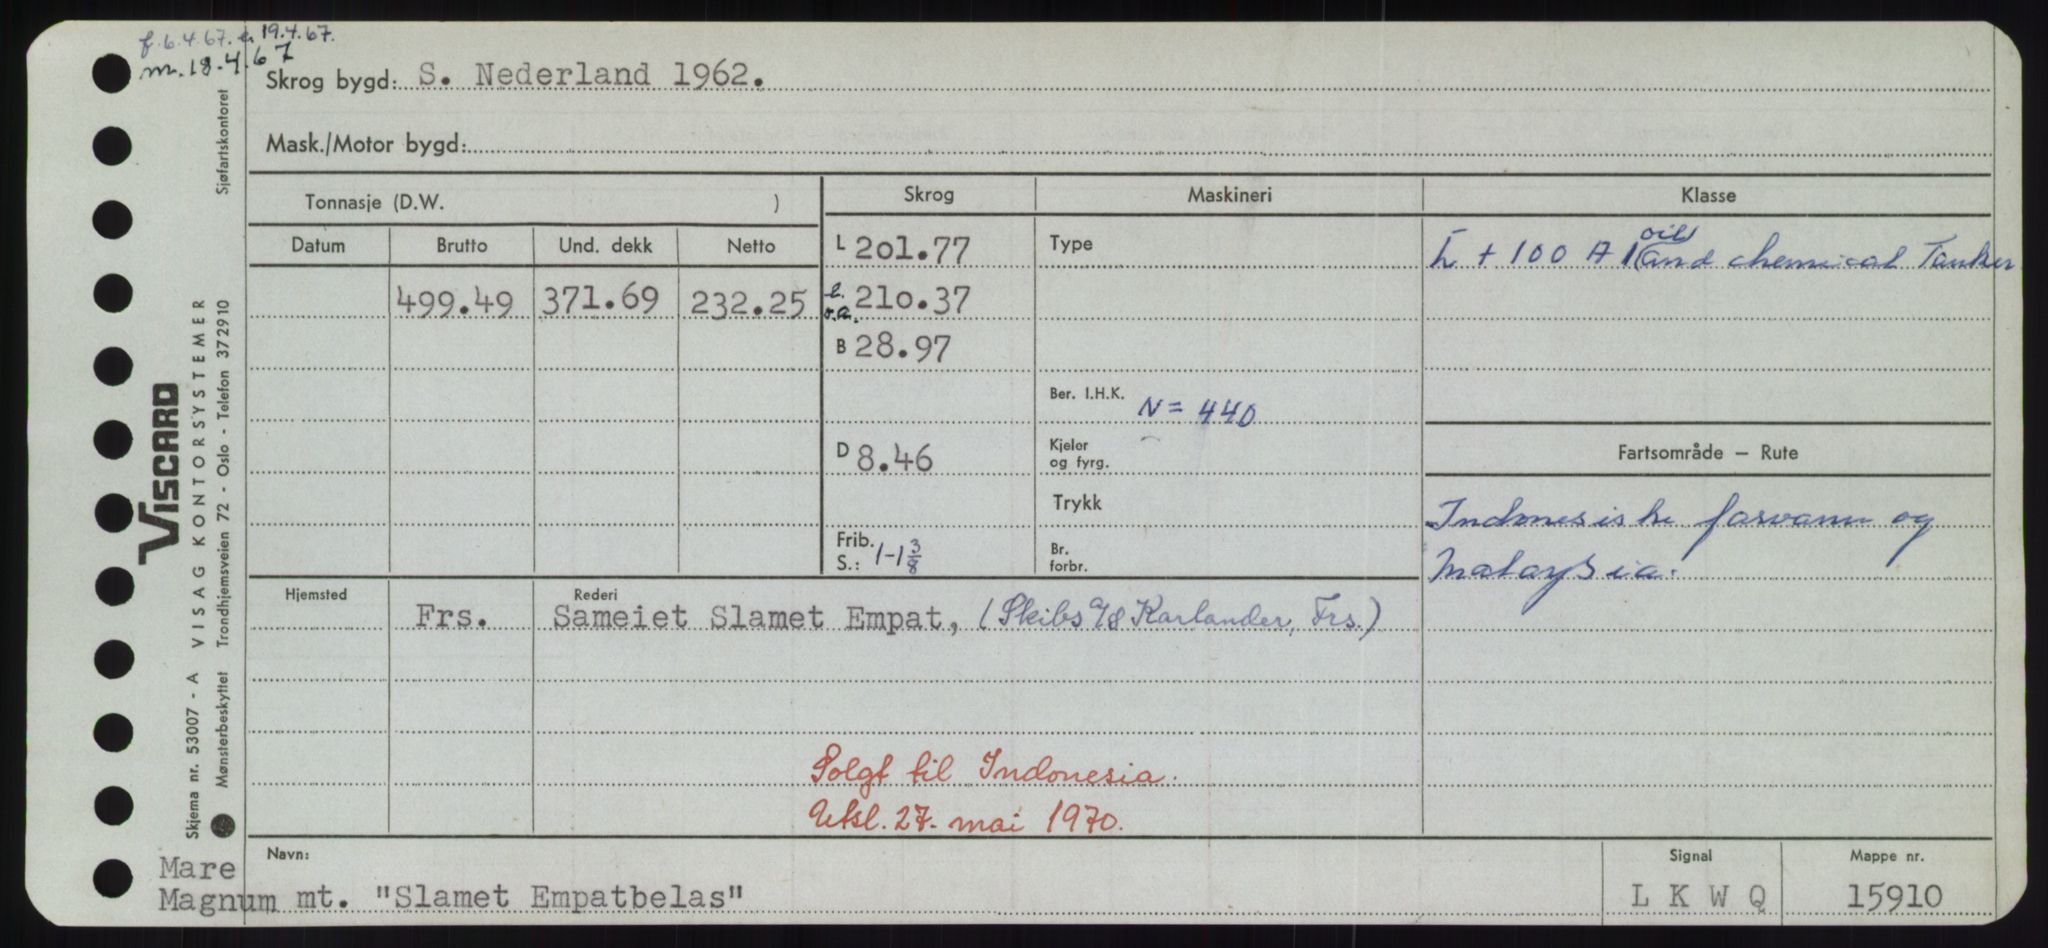 f. 6.4.67. a 19.4.67.
m. 18.4.67
Skrog bygd: S. Nederland 1962.
Mask./Motor bygd:
Tonnasje (D.W. )
Skrog
Maskineri
Klasse
Datum
Brutto
Und. dekk
Netto
499.49
371.69
232.25
L 201.77
l. o.a. 210.37
B 28.97
D 8.46
Frib.
S.: 1-1 3/8
Type
Ber. I.H.K. N = 440
Kjeler
og fyrg.
Trykk
Br.
forbr.
+ 100 A 1 (oil
and chemical Tanker
Fartsområde — Rute
Indonesiske farvann og
Malaysia.
Hjemsted
Rederi
Frs. Sameiet Slamet Empat, (Skibs a/s Karlander, Frs.)
Solgt til Indonesia.
Utsl. 27. mai 1970.
Navn:
Mare
Magnum mt. "Slamet Empatbelas"
Signal
L K W Q
Mappe nr.
15910
Sjøfartskontoret
VISCARD
VISAG KONTORSYSTEMER
Trondhjemsveien 72 - Oslo - Telefon 372910
Skjema nr. 53007 - A
Mønsterbeskyttet